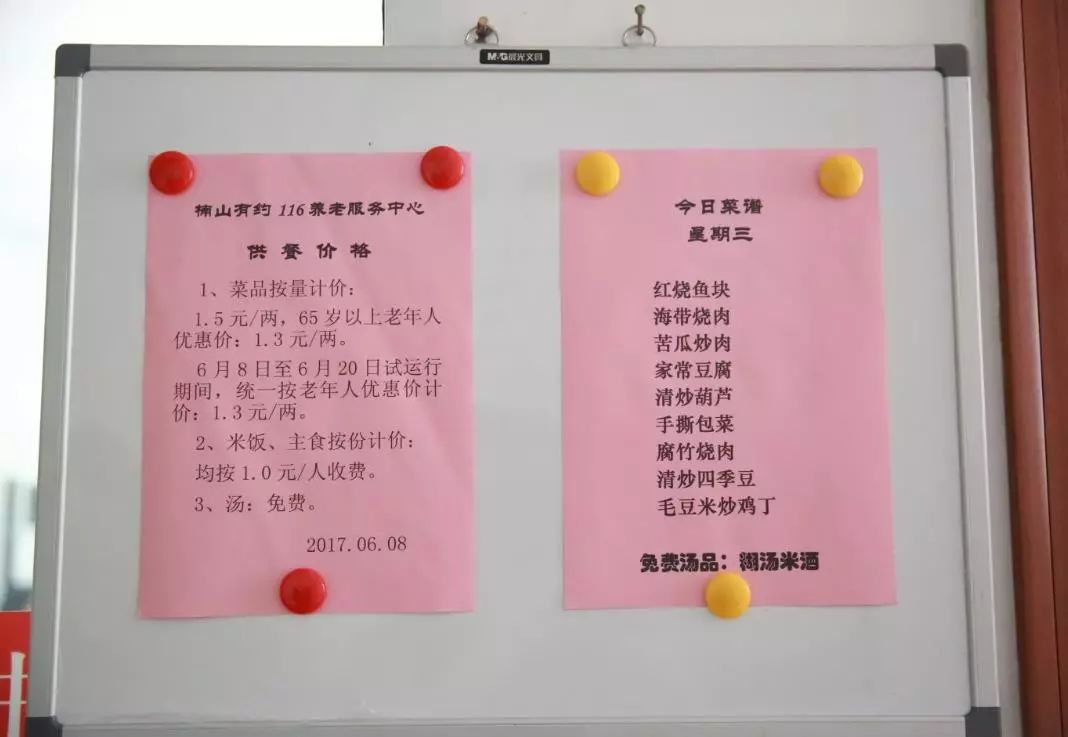 M&G晨光文具
楠山有约 116 养老服务中心
供 餐 价 格
1、菜品按量计价：
1.5 元/两，65 岁以上老年人
优惠价：1.3 元/两。
6 月 8 日至 6 月 20 日试运行
期间，统一按老年人优惠价计
价：1.3 元/两。
2、米饭、主食按份计价：
均按 1.0 元/人收费。
3、汤：免费。
2017.06.08
今日菜谱
星期三
红烧鱼块
海带烧肉
苦瓜炒肉
家常豆腐
清炒葫芦
手撕包菜
腐竹烧肉
清炒四季豆
毛豆米炒鸡丁
免费汤品：糊汤米酒